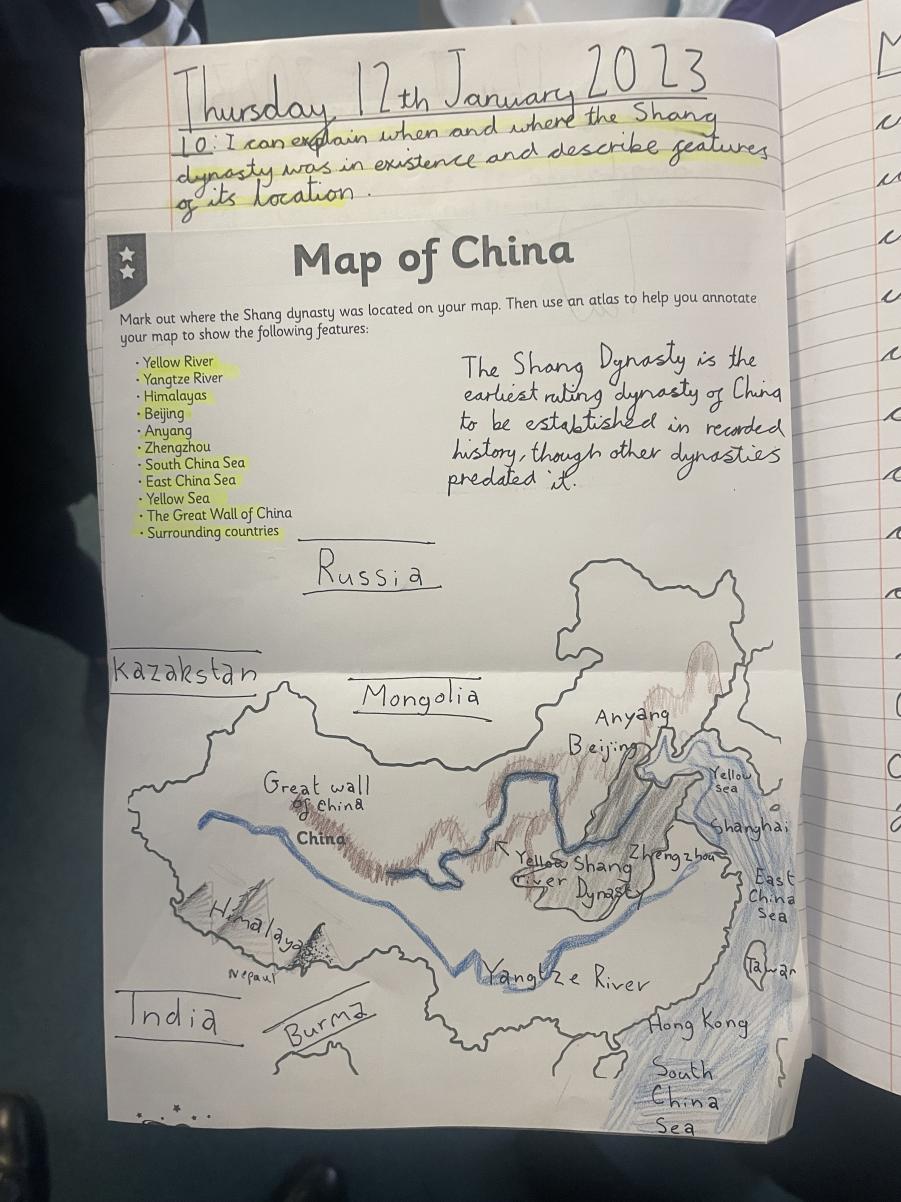 Thursday 12th January 2023
LO: I can explain when and where the Shang
dynasty was in existence and describe features
of its location.
Map of China
Mark out where the Shang dynasty was located on your map. Then use an atlas to help you annotate
your map to show the following features:
· Yellow River
· Yangtze River
· Himalayas
· Beijing
· Anyang
· Zhengzhou
· South China Sea
· East China Sea
· Yellow Sea
· The Great Wall of China
· Surrounding countries
The Shang Dynasty is the
earliest ruling dynasty of China
to be established in recorded
history, though other dynasties
predated it.
Russia
Kazakstan
Mongolia
Anyang
Beijing
Great wall
of China
China
Yellow
sea
Shanghai
Yellow
river
Shang
Dynasty
Zhengzhou
East
China
Sea
Himalaya
Nepaul
Yangtze River
India
Burma
Hong Kong
South
China
Sea